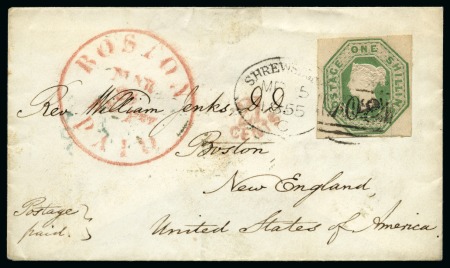 BOSTON
MAR
PAID
SHREWS
MR 5
1855
POSTAGE ONE SHILLING
Rev. William Jenks, D.D.
CENTS
Boston,
New England,
Postage
paid.
United States of America.